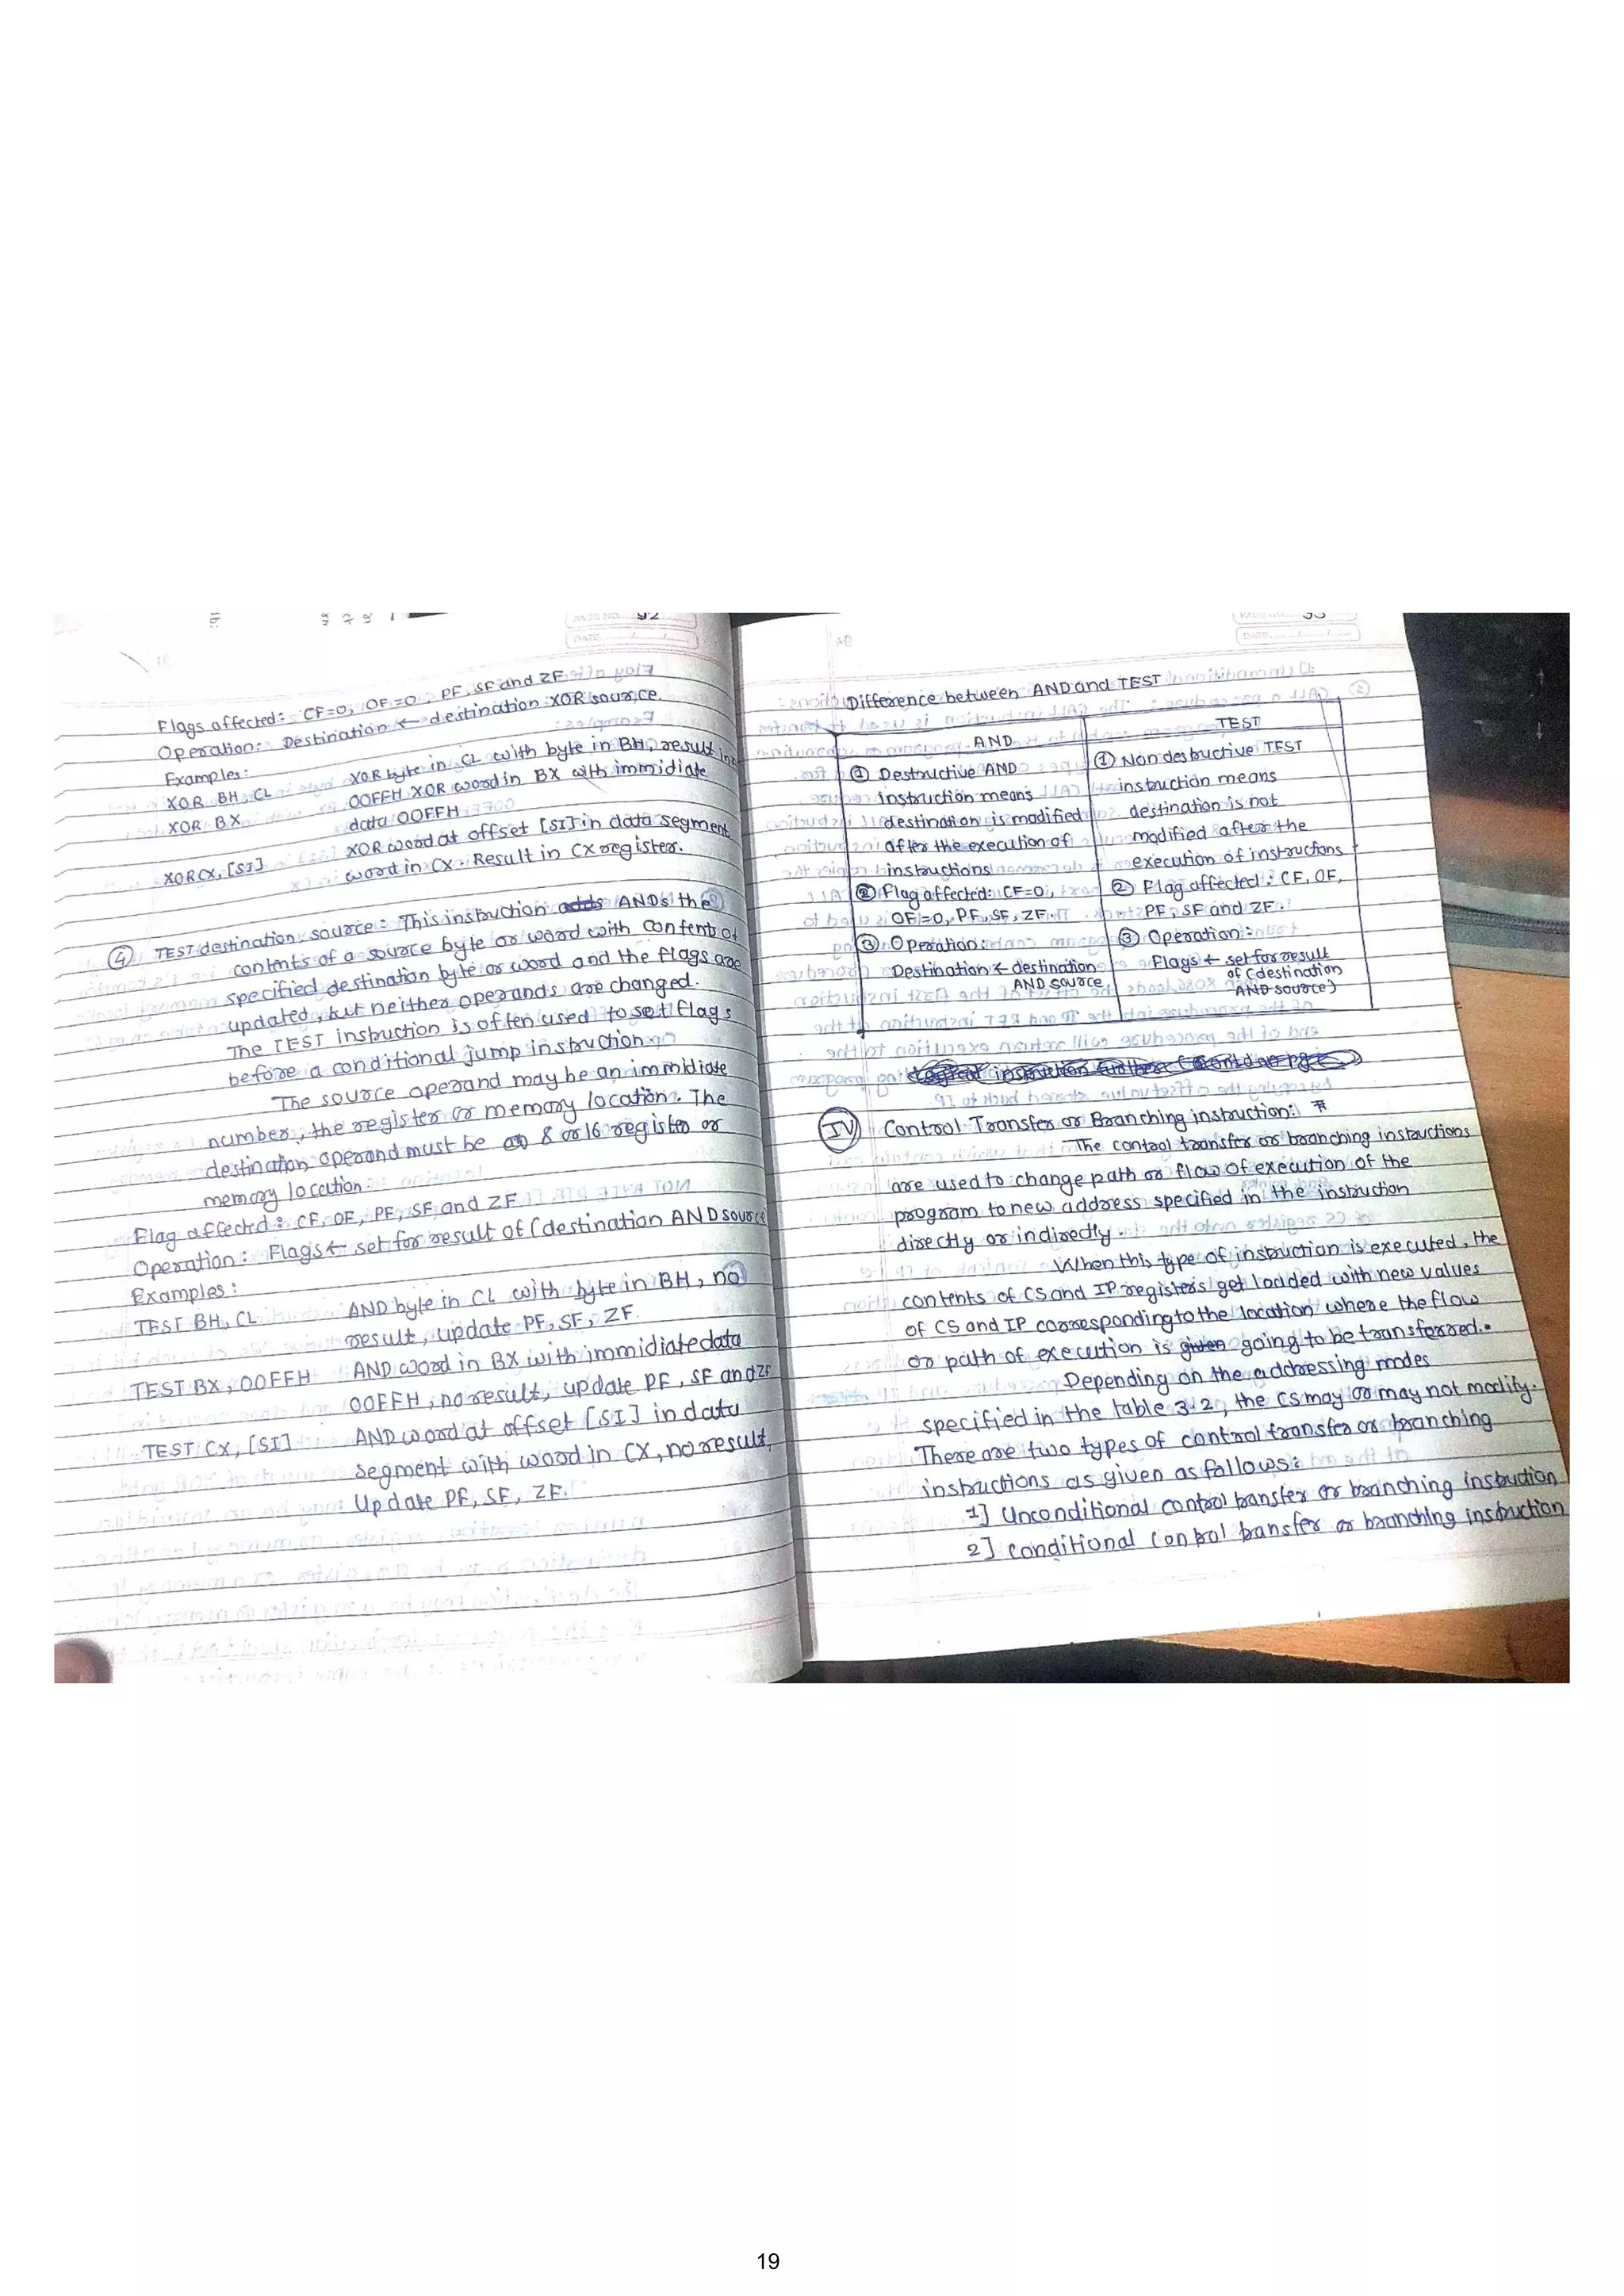 92
DATE
Flags affected: CF=0, OF=0, PF, SF and ZF
Operation: Destination ← destination XOR source.
Examples:
XOR BH, CL XOR byte in CL with byte in BH, result in
XOR BX 00FFH XOR word in BX with immidiate
data 00FFH
XOR CX, [SI] XOR word at offset [SI] in data segment
word in CX. Result in CX register.
④ TEST destination, source: This instruction adds ANDs the
contents of a source byte or word with contents of
specified destination byte or word and the flags are
updated, but neither operands are changed.
The TEST instruction is often used to set flags
before a conditional jump instruction.
The source operand may be an immidiate
number, the register or memory location. The
destination operand must be 8 or 16 register or
memory location.
Flag affected: CF, OF, PF, SF and ZF
Operation: Flags ← set for result of (destination AND source
Examples:
TEST BH, CL AND byte in CL with byte in BH, no
result, update PF, SF, ZF.
TEST BX, 00FFH AND word in BX with immidiate data
00FFH, no result, update PF, SF and ZF
TEST CX, [SI] AND word at offset [SI] in data
segment with word in CX, no result,
Update PF, SF, ZF.
DATE
Difference between AND and TEST
AND TEST
① Destructive AND
instruction means
destination is modified
after the execution of
instructions
② Flag affected: CF=0,
OF=0, PF, SF, ZF.
③ Operation:
Destination ← destination
AND source
① Non destructive TEST
instruction means
destination is not
modified after the
execution of instructions
② Flag affected: CF, OF,
PF, SF and ZF.
③ Operation:
Flags ← set for result
of (destination
AND source)
IV Control Transfer or Branching instruction:
The control transfer or branching instructions
are used to change path or flow of execution of the
program to new address specified in the instruction
directly or indirectly.
When this type of instruction is executed, the
contents of CS and IP registers get loaded with new values
of CS and IP corresponding to the location where the flow
or path of execution is given going to be transferred.
Depending on the addressing modes
specified in the table 3.2, the CS may or may not modify.
There are two types of control transfer or branching
instructions as given as follows:
1] Unconditional control transfer or branching instruction
2] Conditional control transfer or branching instruction
19